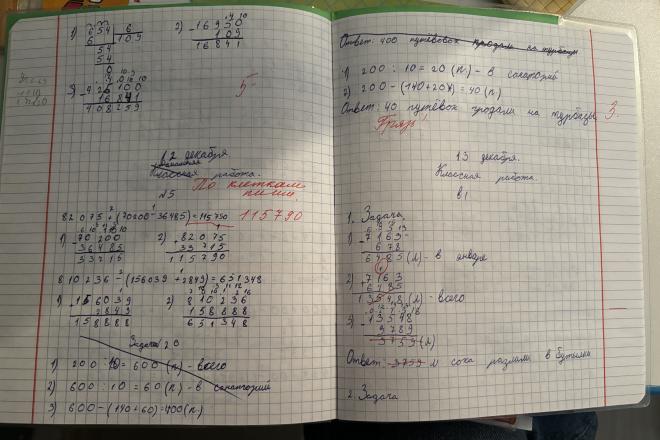 1) 654 | 6
6 | 109
54
54
0
2) - 16950
109
16841
3) - 425100
16841
408259
5
12 декабря.
Классная работа.
По клеткам
пиши.
№5
82075 + (70200 - 36485) = 115750
115790
1) - 70200
36485
33715
2) + 82075
33715
115790
810236 - (156039 + 2849) = 651348
1) + 156039
2849
158888
2) - 810236
158888
651348
Задача 20
1) 200 · 10 = 600 (п.) - всего
2) 600 : 10 = 60 (п.) - в санаторий
3) 600 - (140 + 60) = 400 (п.)
Ответ: 400 путёвок продали на турбазы
1) 200 : 10 = 20 (п.) - в санаторий
2) 200 - (140 + 20) = 40 (п.)
Ответ: 40 путёвок продали на турбазы
3.
Грязь!
13 декабря.
Классная работа.
в 1
1. Задача.
1) - 7163
678
6485 (л) - в январе
2) + 7163
6485
13548 (л) - всего
3) - 13548
9789
3759 (л)
Ответ: 3759 л сока разлили в бутылки
2. Задача